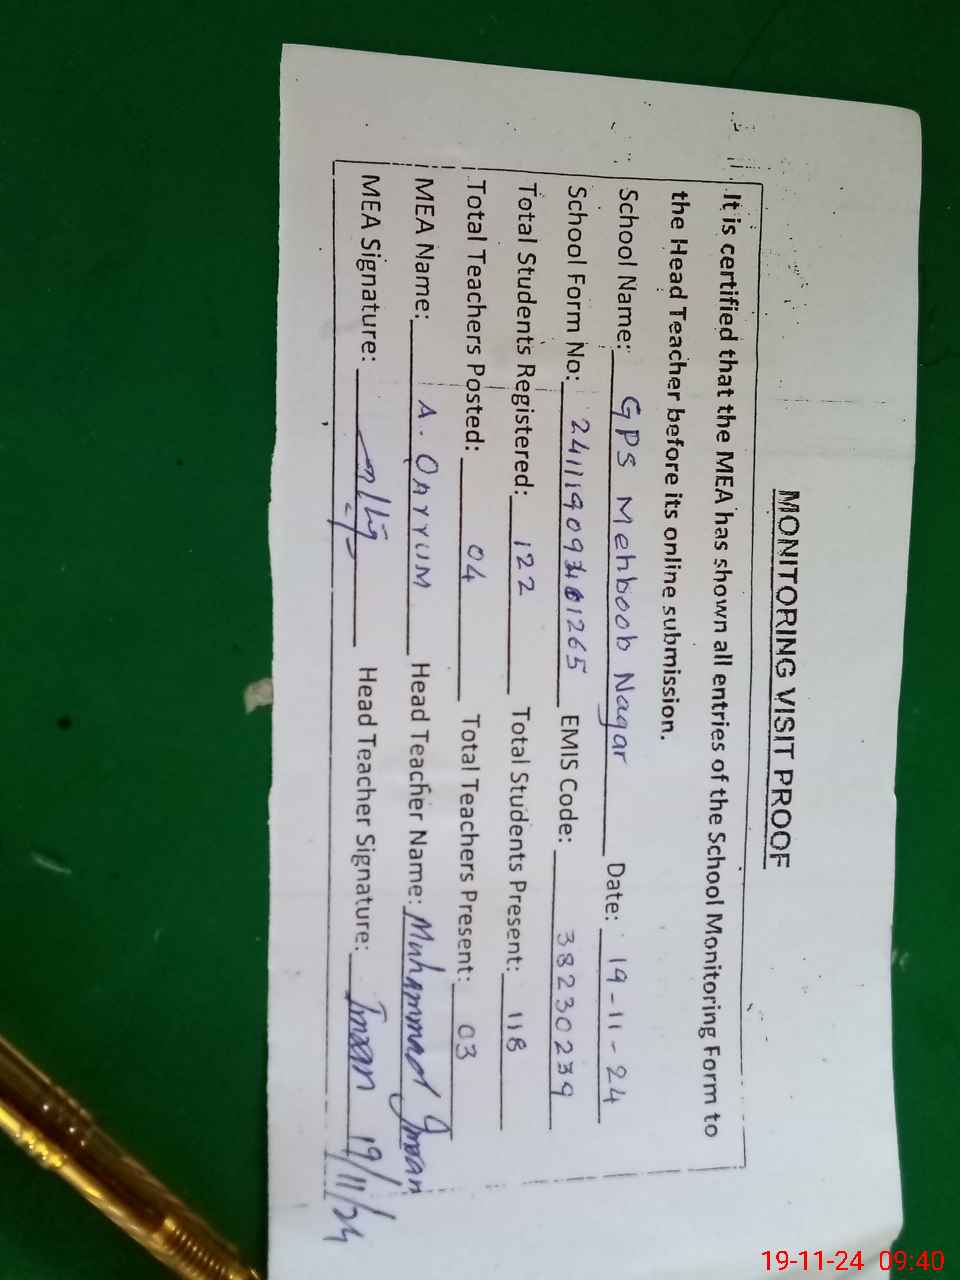 MONITORING VISIT PROOF
It is certified that the MEA has shown all entries of the School Monitoring Form to
the Head Teacher before its online submission.
School Name: GPS Mehboob Nagar Date: 19-11-24
School Form No: EMIS Code: 38230239
Total Students Registered: 122 Total Students Present: 118
Total Teachers Posted: 04 Total Teachers Present: 03
MEA Name: A. QAYYUM Head Teacher Name: Muhammad Imran
MEA Signature: Head Teacher Signature: Imran 19/11/24
19-11-24 09:40